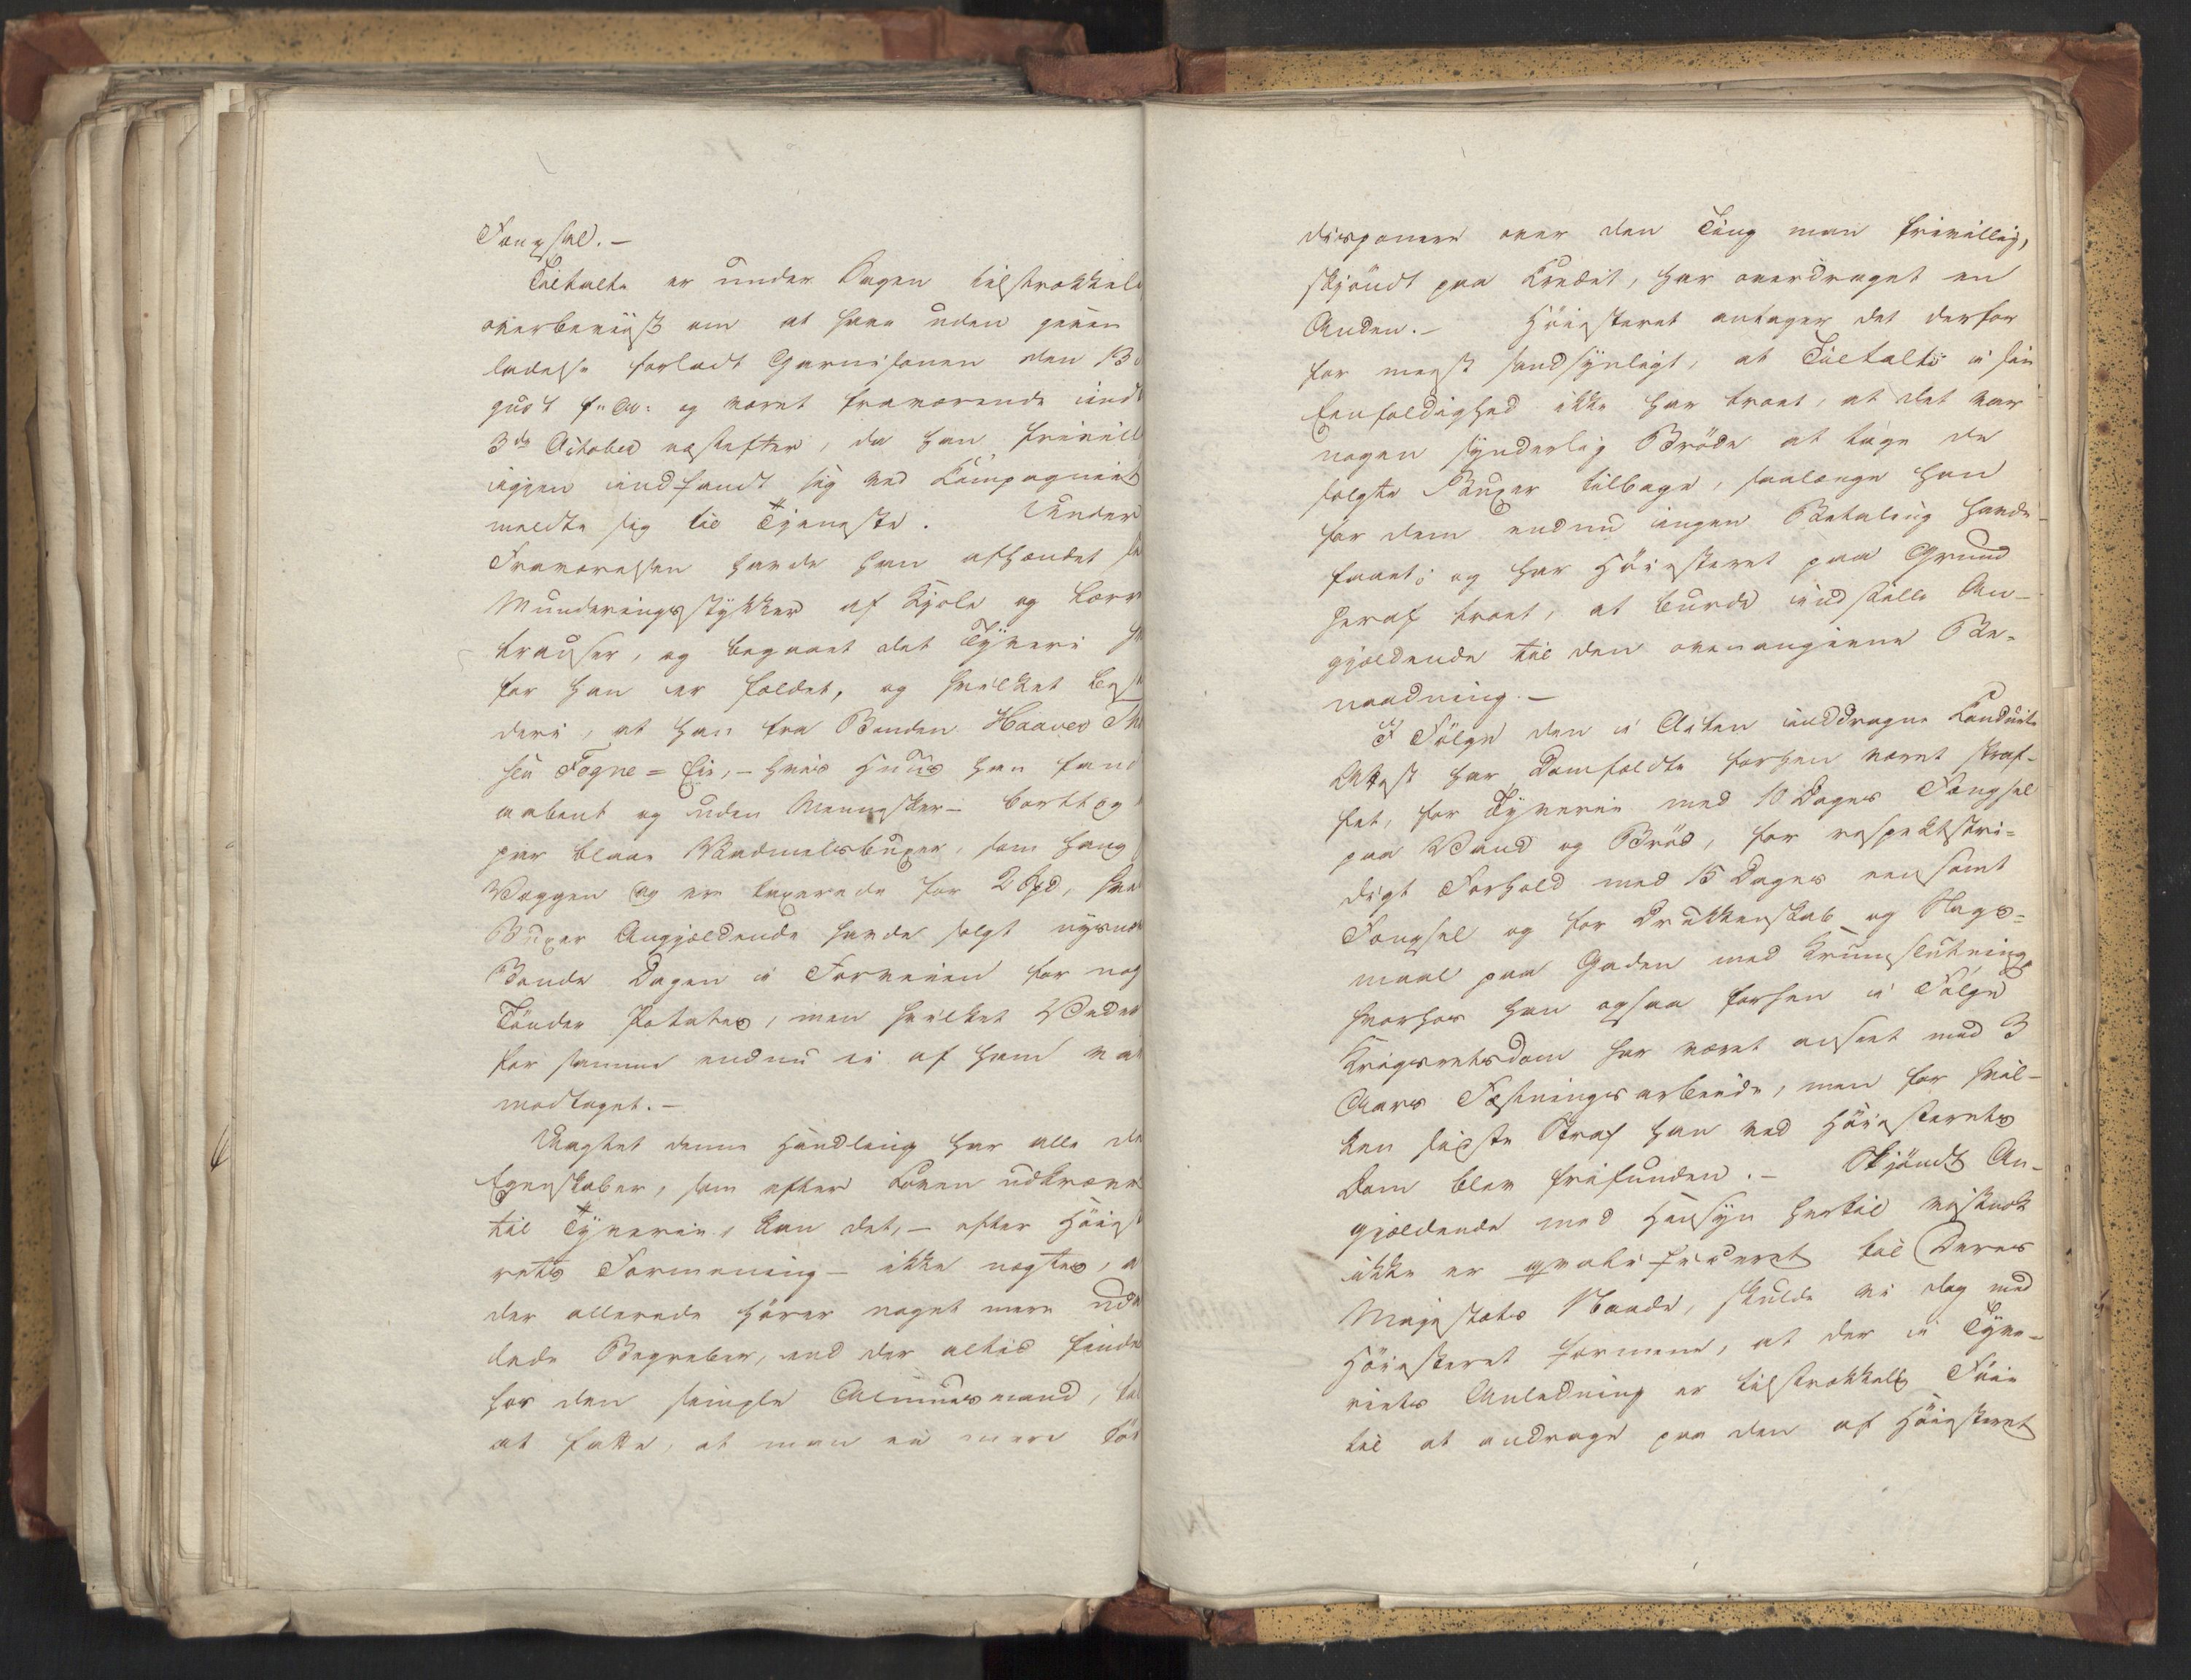 Fængsel. –
Tiltalte er under Sagen tilstrækkeli
overbeviist om at have uden given
ladelse forladt Garnisonen den 13
gust f. A. og været fraværende indt
3de October næstefter, da han frivill
iggjen indfandt sig ved Compagniet
meldte sig til Tjeneste. Under
Fraværelsen havde han afhændet
Munderingsstykker af Kjole og Lærr
trauser, og begaaet det Tyveri
for han er fældet, og hvilket best
deri, at han fra Bonden Haaver
sen Fogne-Eie, – hviis Huus han fand
aabent og uden Mennesker – borttog
par blaae Vadmelsbuxer, som hang
Væggen og ere taxerede for 2 Spd,
Buxer Angjældende havde solgt nysn
Bonde Dagen i Forveien for nog
Tønder Potates, men hvilket Veder
for samme endnu ei af ham va
modtaget. –
Uagtet denne Handling har alle de
Egenskaber, som efter Loven udkræve
til Tyverie, kan det, – efter Höiest
rets Formening – ikke negtes, a
der allerede hører noget mere
lede Begreber, end der altid finde
hos den simple Almuesmand,
at fatte, at man ei mere tör
disponere over den Ting man frivillig,
skjöndt paa Credit, har overdraget en
Anden. – Höiesteret antager det derfor
for meest sandsynligt, at Tiltalte i sin
Eenfoldighed ikke har troet, at det var
nogen synderlig Bröde at tage de
solgte Buxer tilbage, saalænge han
for dem endnu ingen Betaling havde
faaet; og har Höiesteret paa Grund
heraf troet, at burde indstille An-
gjældende til den ovenangivne Be-
naadning. –
I Følge den i Acten inddragne Conduite
Attest har Domfældte forhen været straf-
fet, for Tyverie med 10 Dages Fængsel
paa Vand og Bröd, for respektstri-
digt Forhold med 15 Dages eensomt
Fængsel og for Drukkenskab og Slags-
maal paa Gaden med Krumslutning,
hvorhos han ogsaa forhen i Følge
Krigsretsdom har været anseet med 3
Aars Fæstningsarbeide, men for hvil-
ken sidste Straf han ved Höiesterets
Dom blev frifunden. – Skjöndt An-
gjældende med Hensyn hertil vistnok
ikke er qvalificeret til Deres
Majestæts Naade, skulde vi dog med
Höiesteret formene, at der i Tyve-
riets Anledning er tilstrækkelig Föie
til at andrage paa den af Höiesteret